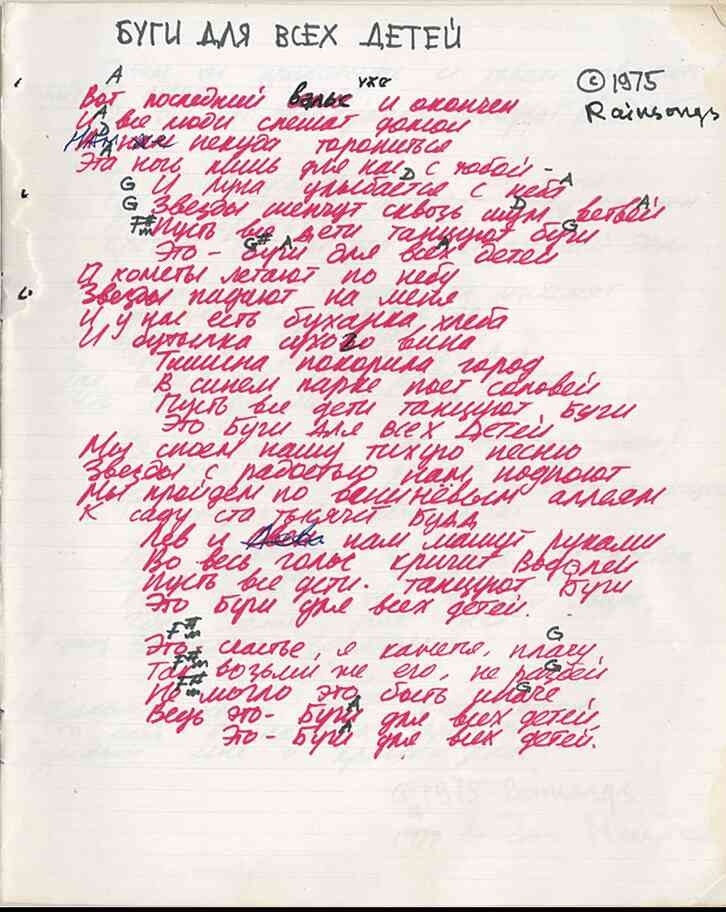 БУГИ ДЛЯ ВСЕХ ДЕТЕЙ
© 1975
Rainsongs
A
Вот последний вальс уже и окончен
A
И все люди спешат домой
D
Нам некуда торопиться
A
Эта ночь лишь для нас с тобой -
G D A
И луна улыбается с неба
G D A
Звезды шепчут сквозь шум ветвей
F#m G
Пусть все дети танцуют буги
G# A A
Это - Буги для всех детей
И кометы летают по небу
Звезды падают на меня
И у нас есть буханка хлеба
И бутылка сухого вина
Тишина покорила город
В синем парке поет соловей
Пусть все дети танцуют Буги
Это Буги Для Всех Детей
Мы споем нашу тихую песню
Звезды с радостью нам подпоют
Мы пройдем по аллеям
К саду ста тысяч Будд
Лев и нам машут руками
Во весь голос кричит Водолей
Пусть все дети танцуют Буги
Это Буги для всех детей.
F#m G
Это счастье, я кажется, плачу,
F#m G
Так возьми же его, не разбей
F#m G
Не могло это быть иначе
A
Ведь это - Буги для всех детей
A
Это - Буги для всех детей.